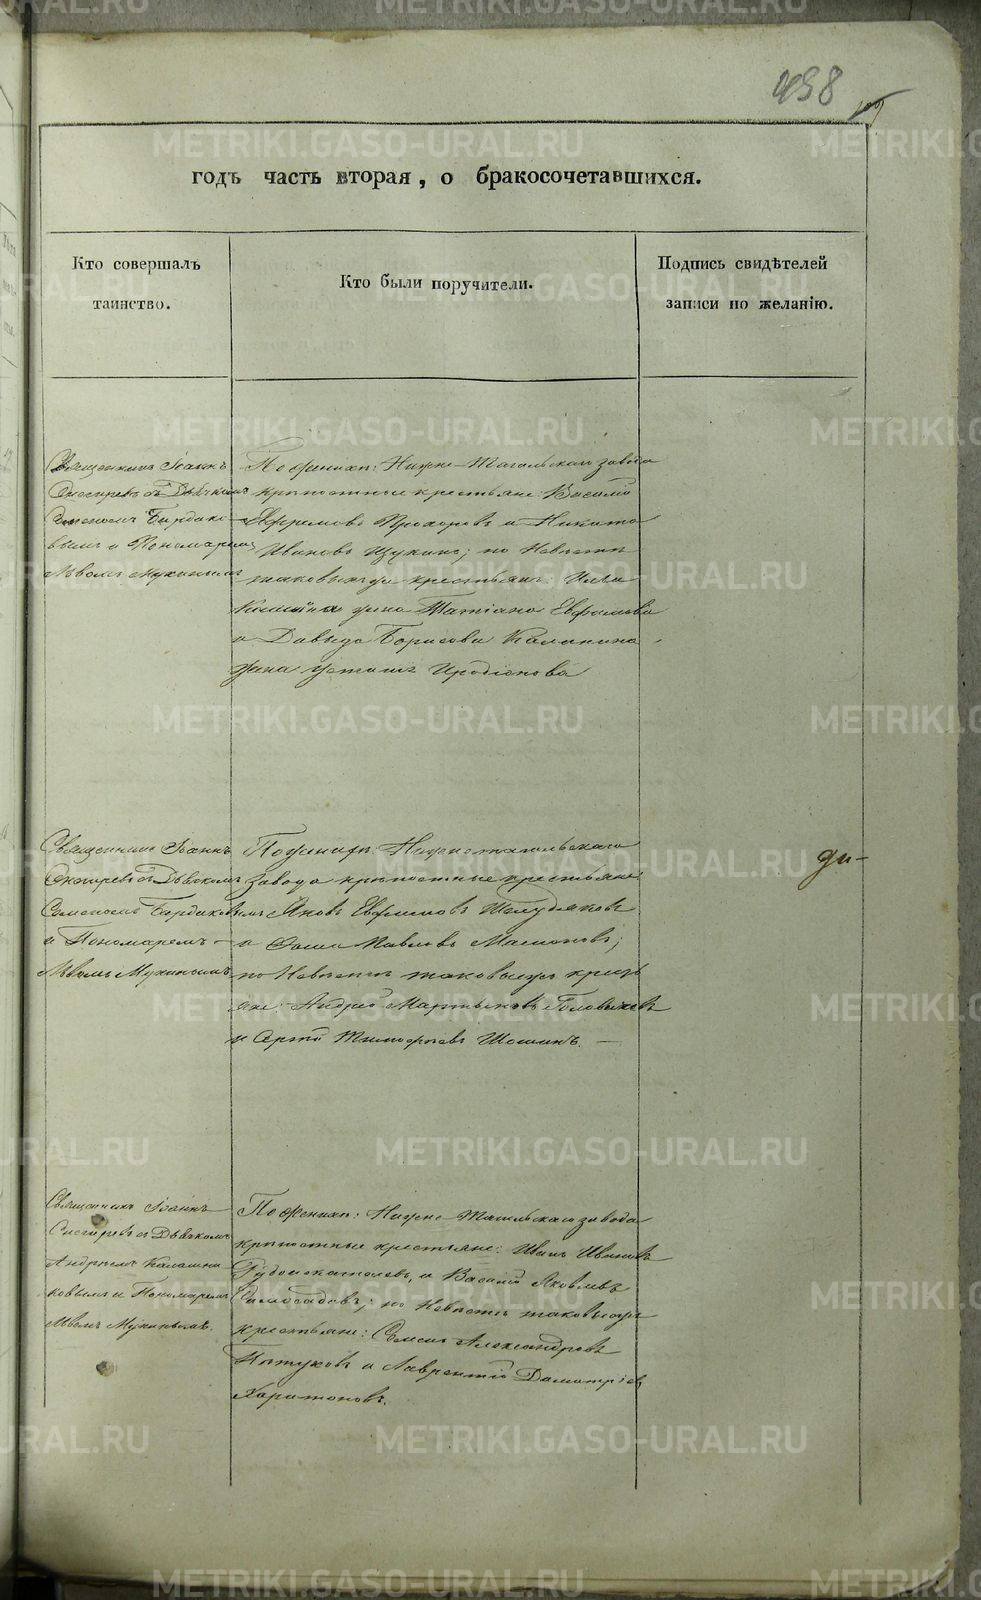 498
109
годъ часть вторая, о бракосочетавшихся.
Кто совершалъ
таинство.
Кто были поручители.
Подпись свидѣтелей
записи по желанію.
Священникъ Іоаннъ
Снегиревъ съ Дьячкомъ
Семеномъ Бирдюко
вымъ и Пономаремъ
Львомъ Мухинымъ
По женихѣ: Нижне-Тагильскаго завода
крѣпостные крестьяне: Василій
Ефремовъ Прохоровъ и Никита
Ивановъ Щукинъ; по Невѣстѣ
таковыхъ же крестьянъ:
жена Татіана
и Давыда Борисова Калинина
жена Ироdіонова
Священникъ Іоаннъ
Снегиревъ съ Дьячкомъ
Семеномъ
и Пономаремъ
Львомъ Мухинымъ
По женихѣ: Нижнетагильскаго
завода крѣпостные крестьяне
Яковъ Шелудяковъ
и Павловъ
по Невѣстѣ таковыежъ крест
яне: Андрей Мартыновъ Головачевъ
и Сергей Тимофеевъ Шошинъ.
ди-
Священникъ Іоаннъ
Снегиревъ съ Дьячкомъ
Андреемъ Калашни
ковымъ и Пономаремъ
Львомъ Мухинымъ.
По женихѣ: Нижне-Тагильскаго завода
крѣпостные крестьяне: Иванъ Ивановъ
Рудоискателевъ, и Василій Яковлевъ
Самосадовъ; по Невѣстѣ таковыежъ
крестьяне: Семенъ Александровъ
Пѣтуховъ и Лаврентій Дмитріевъ
Харитоновъ.
METRIKI.GASO-URAL.RU